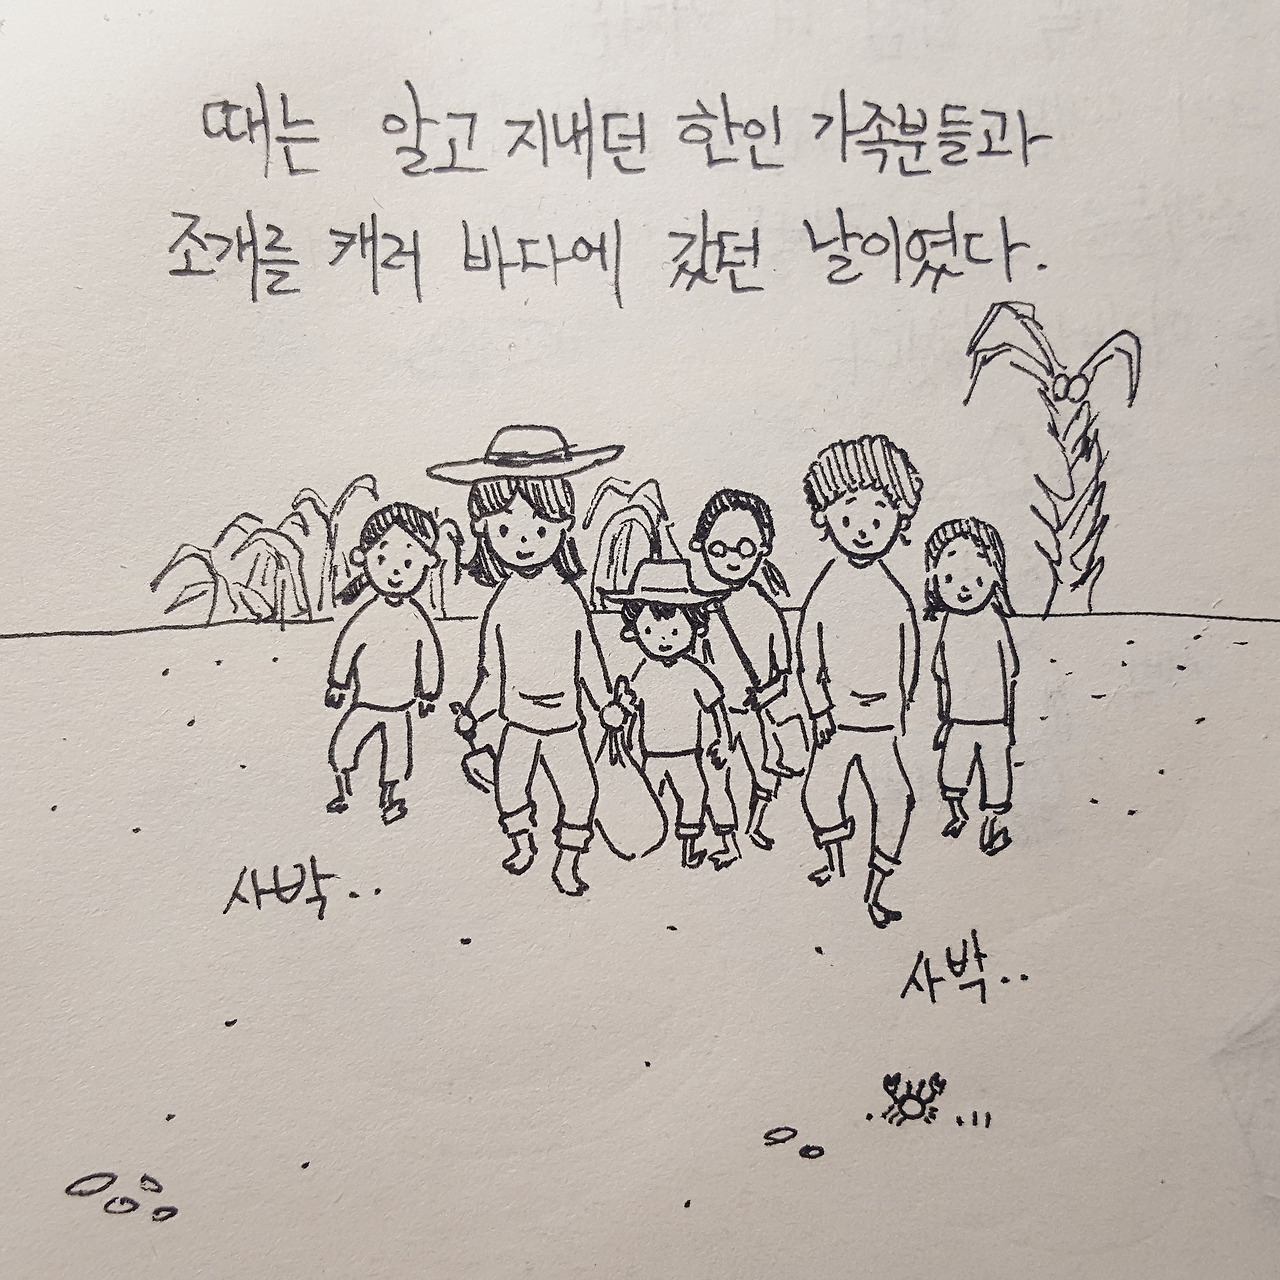 때는 알고 지내던 한인 가족분들과
조개를 캐러 바다에 갔던 날이였다.
사박..
사박..